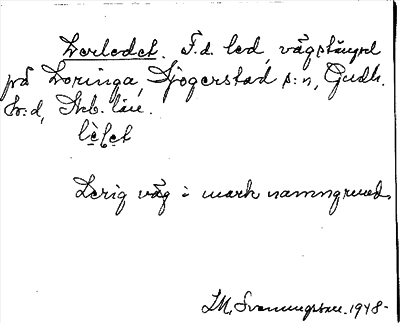 Lerledet. F.d. led, vägstängsel
på Loringa, Sjogerstad s:n, Gudh.
hr:d, Skb. län.
Lerig väg i mark namngrund.
I.M. Svanungsson. 1948-